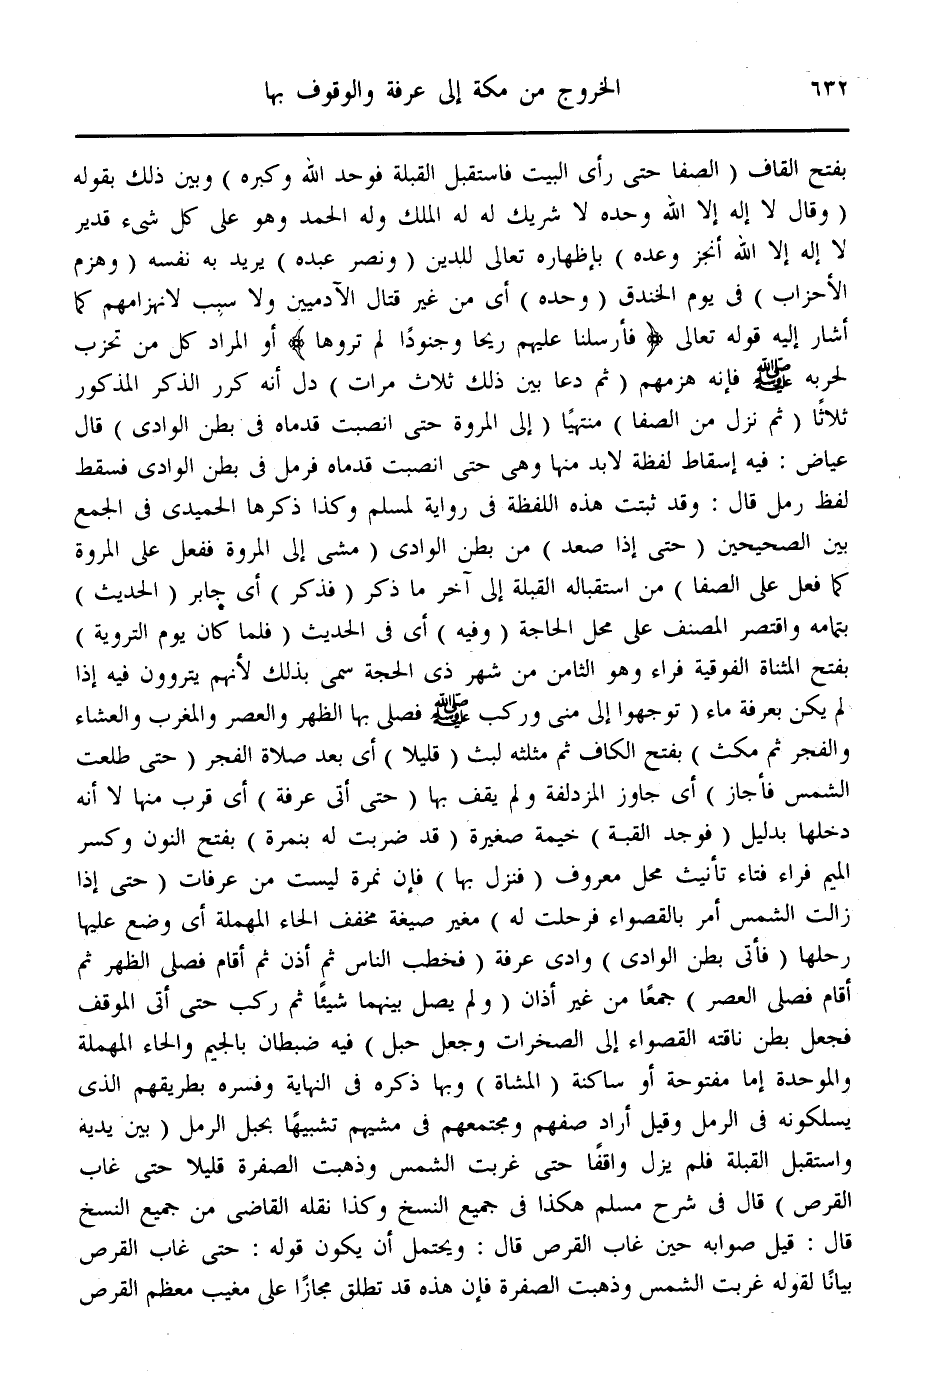 ٦٣٢ الخروج من مكة إلى عرفة والوقوف بها
بفتح القاف ( الصفا حتى رأى البيت فاستقبل القبلة فوحد الله وكبره ) وبين ذلك بقوله
( وقال لا إله إلا الله وحده لا شريك له له الملك وله الحمد وهو على كل شىء قدير
لا إله إلا الله أنجز وعده ) بإظهاره تعالى للدين ( ونصر عبده ) يريد به نفسه ( وهزم
الأحزاب ) فى يوم الخندق ( وحده ) أى من غير قتال الآدميين ولا سبب لانهزامهم كما
أشار إليه قوله تعالى ﴿ فأرسلنا عليهم ريحا وجنودًا لم تروها ﴾ أو المراد كل من تحزب
لحربه ﷺ فإنه هزمهم ( ثم دعا بين ذلك ثلاث مرات ) دل أنه كرر الذكر المذكور
ثلاثًا ( ثم نزل من الصفا ) منتهيًا ( إلى المروة حتى انصبت قدماه فى بطن الوادى ) قال
عياض : فيه إسقاط لفظة لابد منها وهى حتى انصبت قدماه فرمل فى بطن الوادى فسقط
لفظ رمل قال : وقد ثبتت هذه اللفظة فى رواية لمسلم وكذا ذكرها الحميدى فى الجمع
بين الصحيحين ( حتى إذا صعد ) من بطن الوادى ( مشى إلى المروة ففعل على المروة
كما فعل على الصفا ) من استقباله القبلة إلى آخر ما ذكر ( فذكر ) أى جابر ( الحديث )
بتمامه واقتصر المصنف على محل الحاجة ( وفيه ) أى فى الحديث ( فلما كان يوم التروية )
بفتح المثناة الفوقية فراء وهو الثامن من شهر ذى الحجة سمى بذلك لأنهم يتروون فيه إذا
لم يكن بعرفة ماء ( توجهوا إلى منى وركب ﷺ فصلى بها الظهر والعصر والمغرب والعشاء
والفجر ثم مكث ) بفتح الكاف ثم مثلثه لبث ( قليلا ) أى بعد صلاة الفجر ( حتى طلعت
الشمس فأجاز ) أى جاوز المزدلفة ولم يقف بها ( حتى أتى عرفة ) أى قرب منها لا أنه
دخلها بدليل ( فوجد القبة ) خيمة صغيرة ( قد ضربت له بنمرة ) بفتح النون وكسر
الميم فراء فتاء تأنيث محل معروف ( فنزل بها ) فإن نمرة ليست من عرفات ( حتى إذا
زالت الشمس أمر بالقصواء فرحلت له ) مغير صيغة مخفف الحاء المهملة أى وضع عليها
رحلها ( فأتى بطن الوادى ) وادى عرفة ( فخطب الناس ثم أذن ثم أقام فصلى الظهر ثم
أقام فصلى العصر ) جمعًا من غير أذان ( ولم يصل بينهما شيئًا ثم ركب حتى أتى الموقف
فجعل بطن ناقته القصواء إلى الصخرات وجعل حبل ) فيه ضبطان بالجيم والحاء المهملة
والموحدة إما مفتوحة أو ساكنة ( المشاة ) وبها ذكره فى النهاية وفسره بطريقهم الذى
يسلكونه فى الرمل وقيل أراد صفهم ومجتمعهم فى مشيهم تشبيهًا بحبل الرمل ( بين يديه
واستقبل القبلة فلم يزل واقفًا حتى غربت الشمس وذهبت الصفرة قليلا حتى غاب
القرص ) قال فى شرح مسلم هكذا فى جميع النسخ وكذا نقله القاضى من جميع النسخ
قال : قيل صوابه حين غاب القرص قال : ويحتمل أن يكون قوله : حتى غاب القرص
بيانًا لقوله غربت الشمس وذهبت الصفرة فإن هذه قد تطلق مجازًا على مغيب معظم القرص